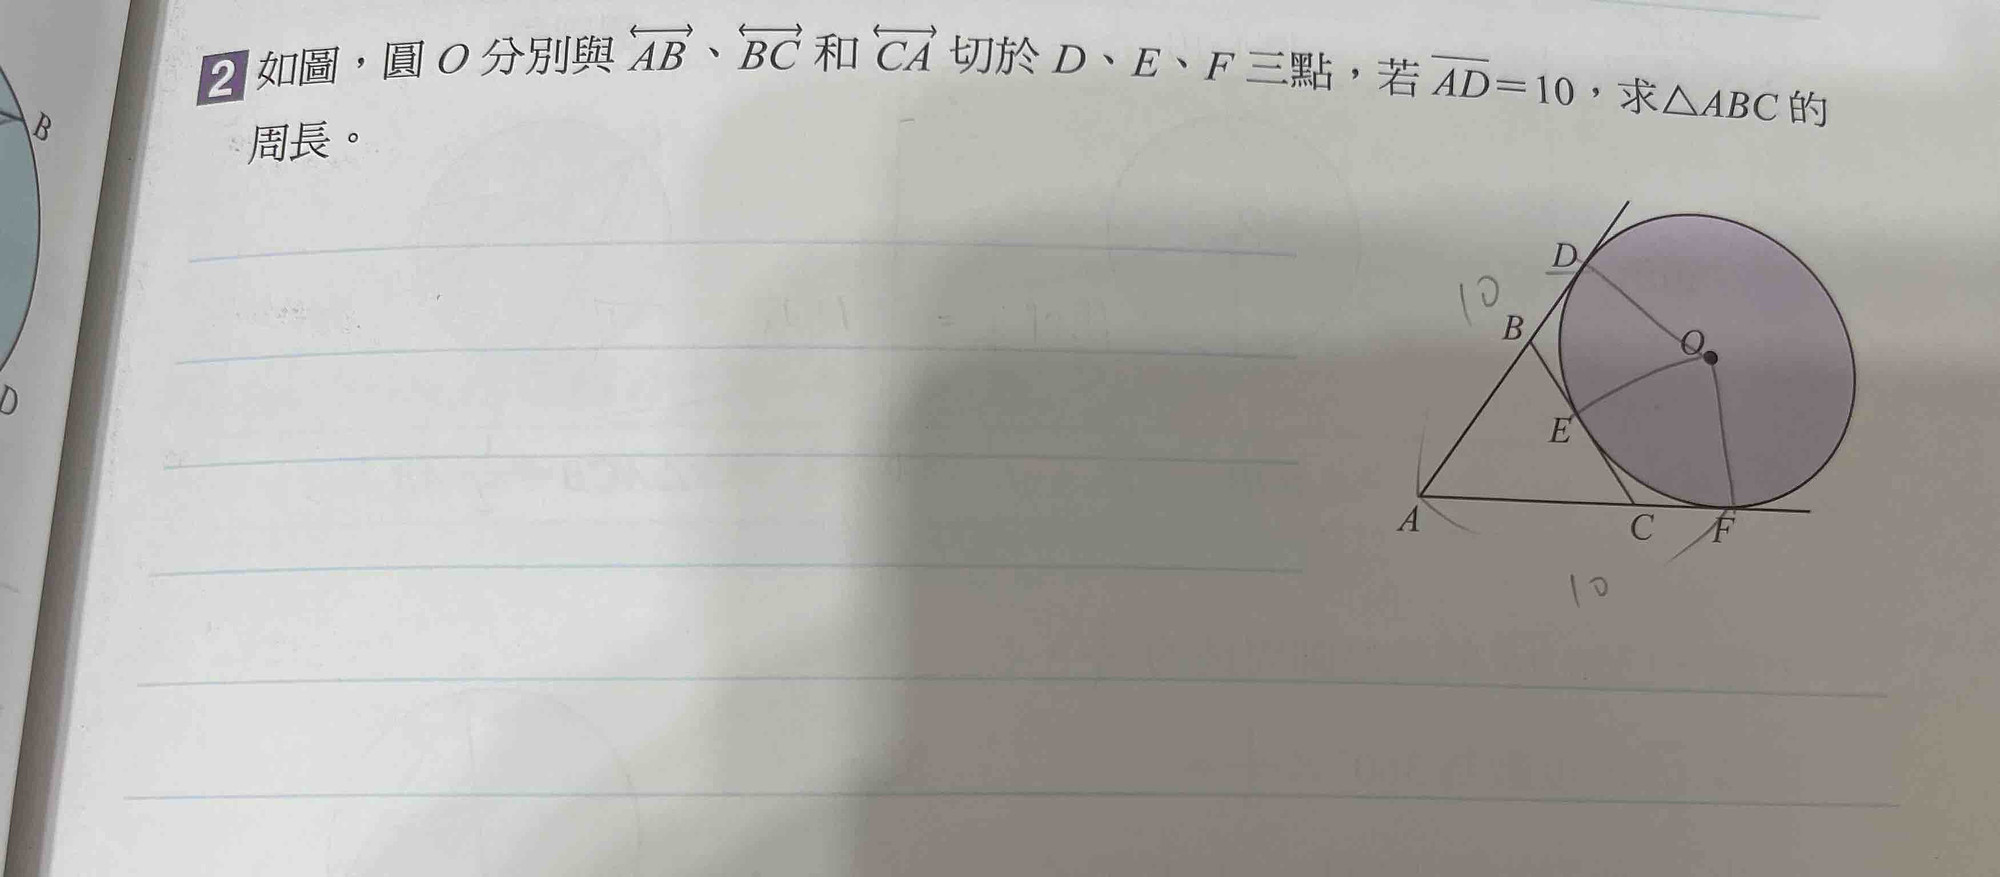 2 如圖，圓 O 分別與 AB、BC 和 CA 切於 D、E、F 三點，若 AD=10，求△ABC 的
周長。
B
D
D
10
B
O
E
A
C
F
10